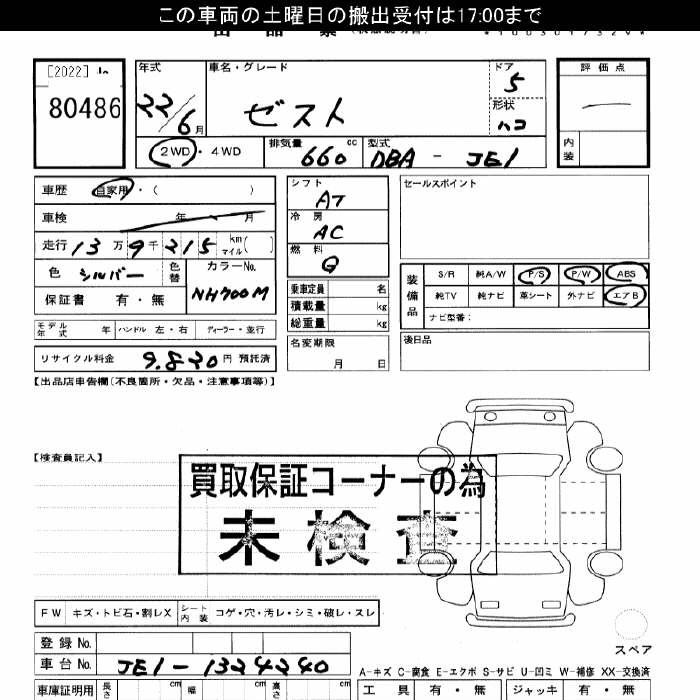 この車両の土曜日の搬出受付は17:00まで
[2022]
80486
年式
22/6月
車名・グレード
ゼスト
ドア
5
形状
ハコ
評価点
内装
2WD・4WD
排気量 660 cc
型式 DBA - JE1
車歴 自家用・( )
車検 年 月
走行 13万9千215 km マイル( )
色 シルバー 色替
カラーNo.
NH700M
保証書 有・無
モデル年式 年 ハンドル 左・右 ディーラー・並行
リサイクル料金 9.820円 預託済
シフト
AT
冷房
AC
燃料
G
乗車定員 名
積載量 kg
総重量 kg
名変期限
月 日
セールスポイント
装備品
S/R 純A/W P/S P/W ABS
純TV 純ナビ 革シート 外ナビ エアB
ナビ型番:
後日品
【出品店車告欄(不良箇所・欠品・注意事項等)】
【検査員記入】
買取保証コーナーの為
未検査
FW キズ・トビ石・割レX シート内装 コゲ・穴・汚レ・シミ・破レ・スレ
スペア
登録No.
車台No. JE1-1324240
A-キズ C-腐食 E-エクボ S-サビ U-凹ミ W-補修 XX-交換済
車庫証明用 長さ cm 幅 cm 高さ cm
工具 有・無 ジャッキ 有・無